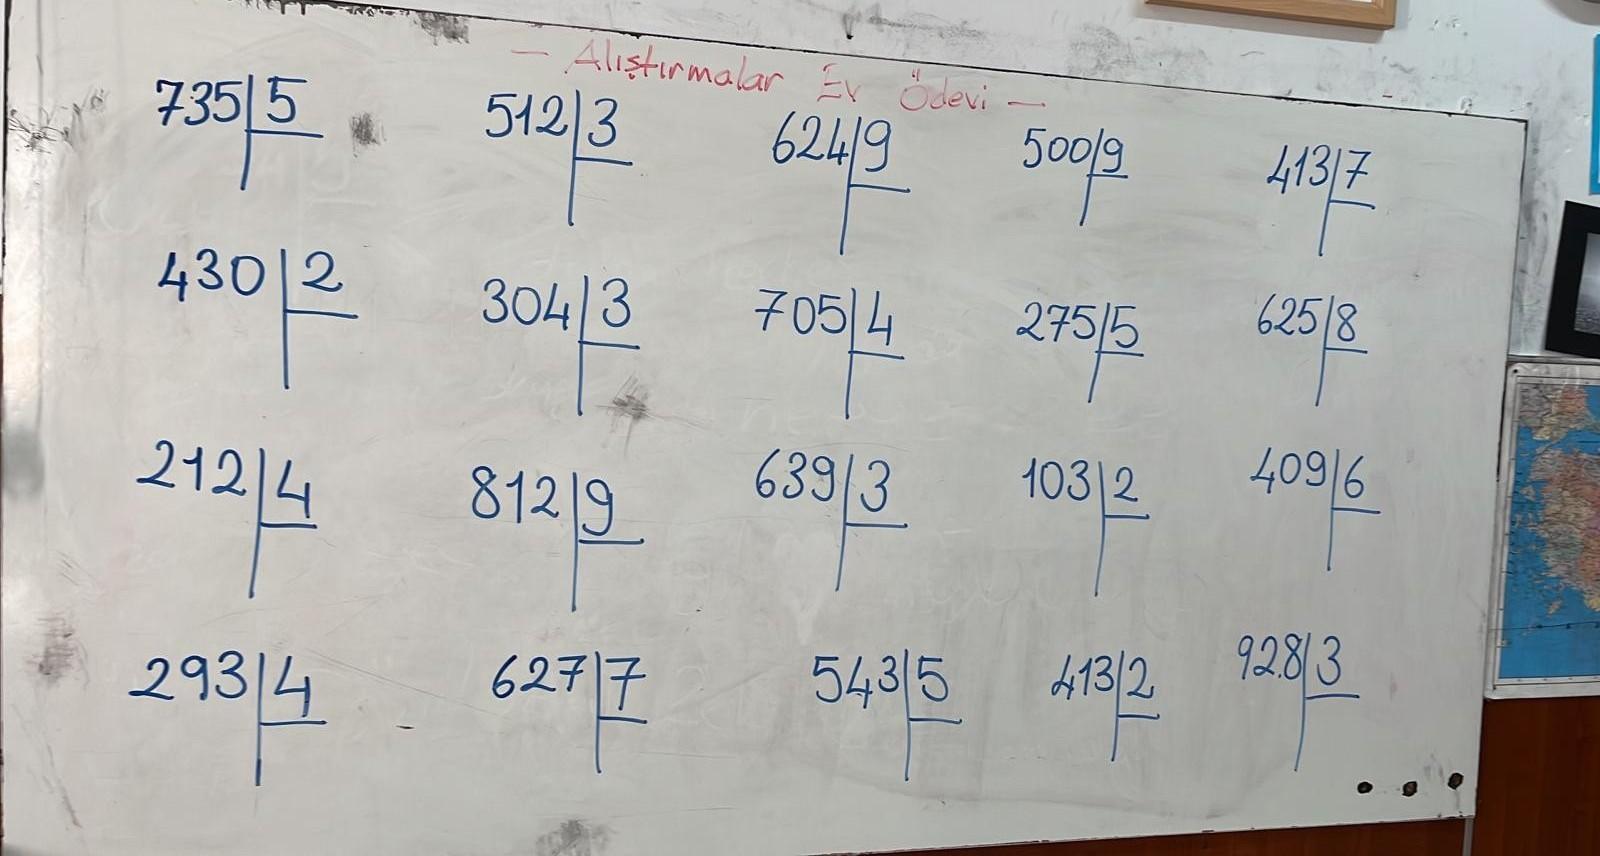 — Alıştırmalar Ev Ödevi —
735 5 512 3 624 9 500 9 413 7
430 2 304 3 705 4 275 5 625 8
212 4 812 9 639 3 103 2 409 6
293 4 627 7 543 5 413 2 928 3